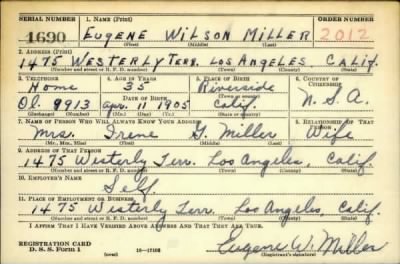 SERIAL NUMBER 1. NAME (Print) ORDER NUMBER
1690 EUGENE WILSON MILLER 2012
(First) (Middle) (Last)
2. ADDRESS (Print)
1475 WESTERLY TERR. LOS ANGELES, CALIF.
(Number and street or R. F. D. number) (Town) (County) (State)
3. TELEPHONE 4. AGE IN YEARS 5. PLACE OF BIRTH 6. COUNTRY OF CITIZENSHIP
Home 35 Riverside
DATE OF BIRTH (Town or county)
Ol. 9913 Apr. 11 1905 Calif. U. S. A.
(Exchange) (Number) (Mo.) (Day) (Yr.) (State or country)
7. NAME OF PERSON WHO WILL ALWAYS KNOW YOUR ADDRESS 8. RELATIONSHIP OF THAT PERSON
Mrs. Irene G. Miller Wife
(Mr., Mrs., Miss) (First) (Middle) (Last)
9. ADDRESS OF THAT PERSON
1475 Westerly Terr. Los Angeles, Calif.
(Number and street or R. F. D. number) (Town) (County) (State)
10. EMPLOYER'S NAME
Self.
11. PLACE OF EMPLOYMENT OR BUSINESS
1475 Westerly Terr. Los Angeles, Calif.
(Number and street or R. F. D. number) (Town) (County) (State)
I AFFIRM THAT I HAVE VERIFIED ABOVE ANSWERS AND THAT THEY ARE TRUE.
REGISTRATION CARD
D. S. S. Form 1 16—17105 Eugene W. Miller
(Registrant's signature)